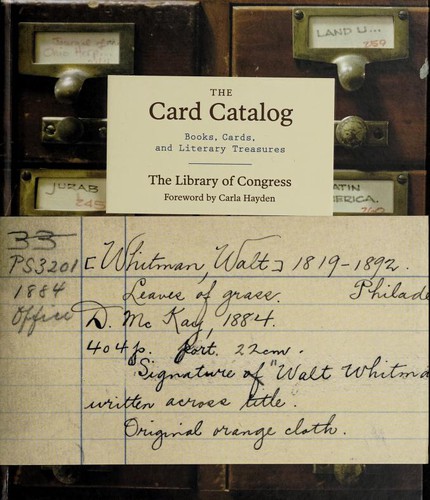 Journal of
LAND U...
759
THE
Card Catalog
Books, Cards,
and Literary Treasures
The Library of Congress
Foreword by Carla Hayden
JUZAB
ATIN
ERICA.
33
PS3201 [Whitman, Walt] 1819-1892.
1884 Leaves of grass. Philade
Office D. McKay, 1884.
404 p. port. 22cm.
Signature of "Walt Whitma
written across title.
Original orange cloth.